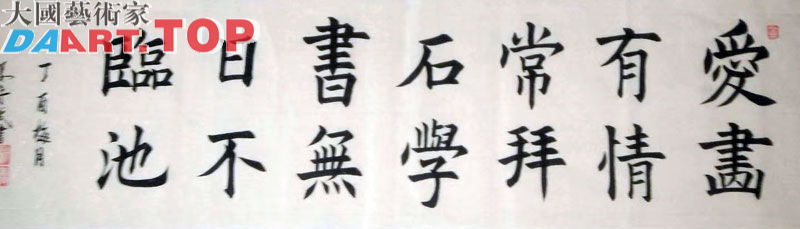 大國藝術家
DAART.TOP
愛畫
有情
常拜
石學
書無
日不
臨池
丁酉梅月